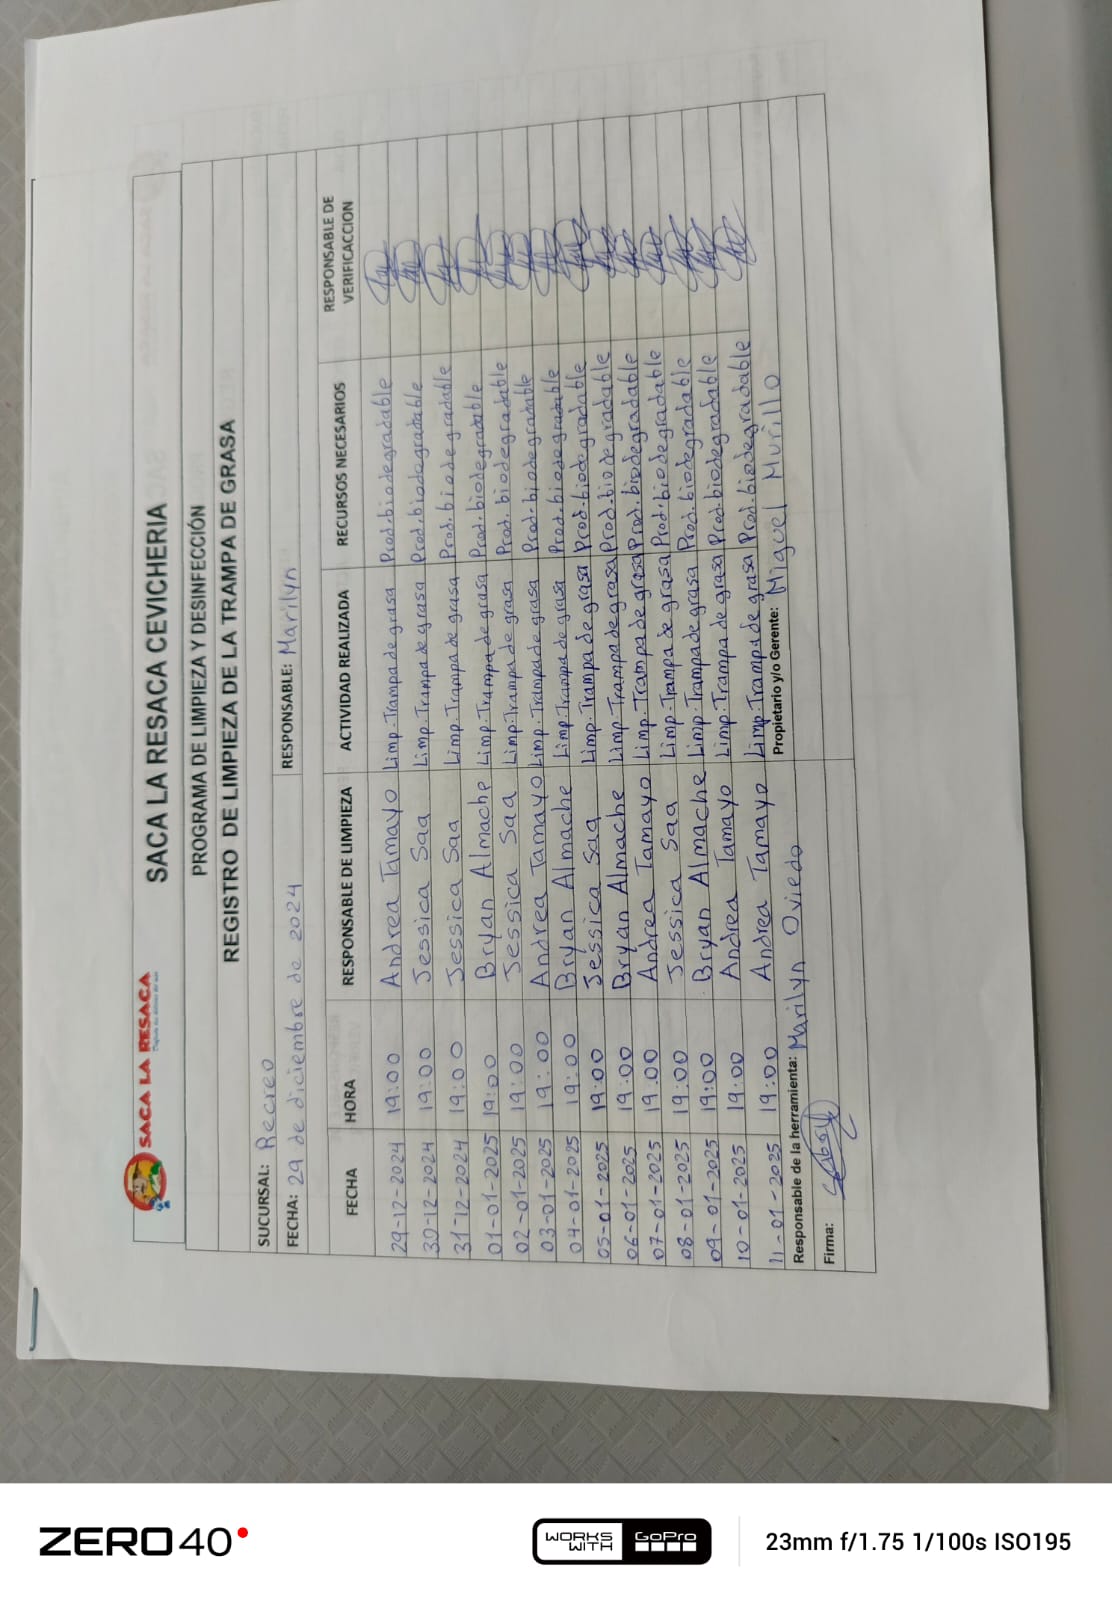 SACA LA RESACA
SACA LA RESACA CEVICHERIA
PROGRAMA DE LIMPIEZA Y DESINFECCIÓN
REGISTRO DE LIMPIEZA DE LA TRAMPA DE GRASA
SUCURSAL: Recreo
FECHA: 29 de diciembre de 2024 RESPONSABLE: Marilyn
FECHA HORA RESPONSABLE DE LIMPIEZA ACTIVIDAD REALIZADA RECURSOS NECESARIOS RESPONSABLE DE VERIFICACCION
29-12-2024 19:00 Andrea Tamayo Limp.Trampa de grasa Prod.biodegradable
30-12-2024 19:00 Jessica Saa Limp.Trampa de grasa Prod.biodegradable
31-12-2024 19:00 Jessica Saa Limp.Trampa de grasa Prod.biodegradable
01-01-2025 19:00 Bryan Almache Limp.Trampa de grasa Prod.biodegradable
02-01-2025 19:00 Jessica Saa Limp.Trampa de grasa Prod.biodegradable
03-01-2025 19:00 Andrea Tamayo Limp.Trampa de grasa Prod.biodegradable
04-01-2025 19:00 Bryan Almache Limp.Trampa de grasa Prod.biodegradable
05-01-2025 19:00 Jessica Saa Limp.Trampa de grasa Prod.biodegradable
06-01-2025 19:00 Bryan Almache Limp.Trampa de grasa Prod.biodegradable
07-01-2025 19:00 Andrea Tamayo Limp.Trampa de grasa Prod.biodegradable
08-01-2025 19:00 Jessica Saa Limp.Trampa de grasa Prod.biodegradable
09-01-2025 19:00 Bryan Almache Limp.Trampa de grasa Prod.biodegradable
10-01-2025 19:00 Andrea Tamayo Limp.Trampa de grasa Prod.biodegradable
11-01-2025 19:00 Andrea Tamayo Limp.Trampa de grasa Prod.biodegradable
Responsable de la herramienta: Marilyn Oviedo Propietario y/o Gerente: Miguel Murillo
Firma:
ZERO40
WORKS WITH GoPro
23mm f/1.75 1/100s ISO195